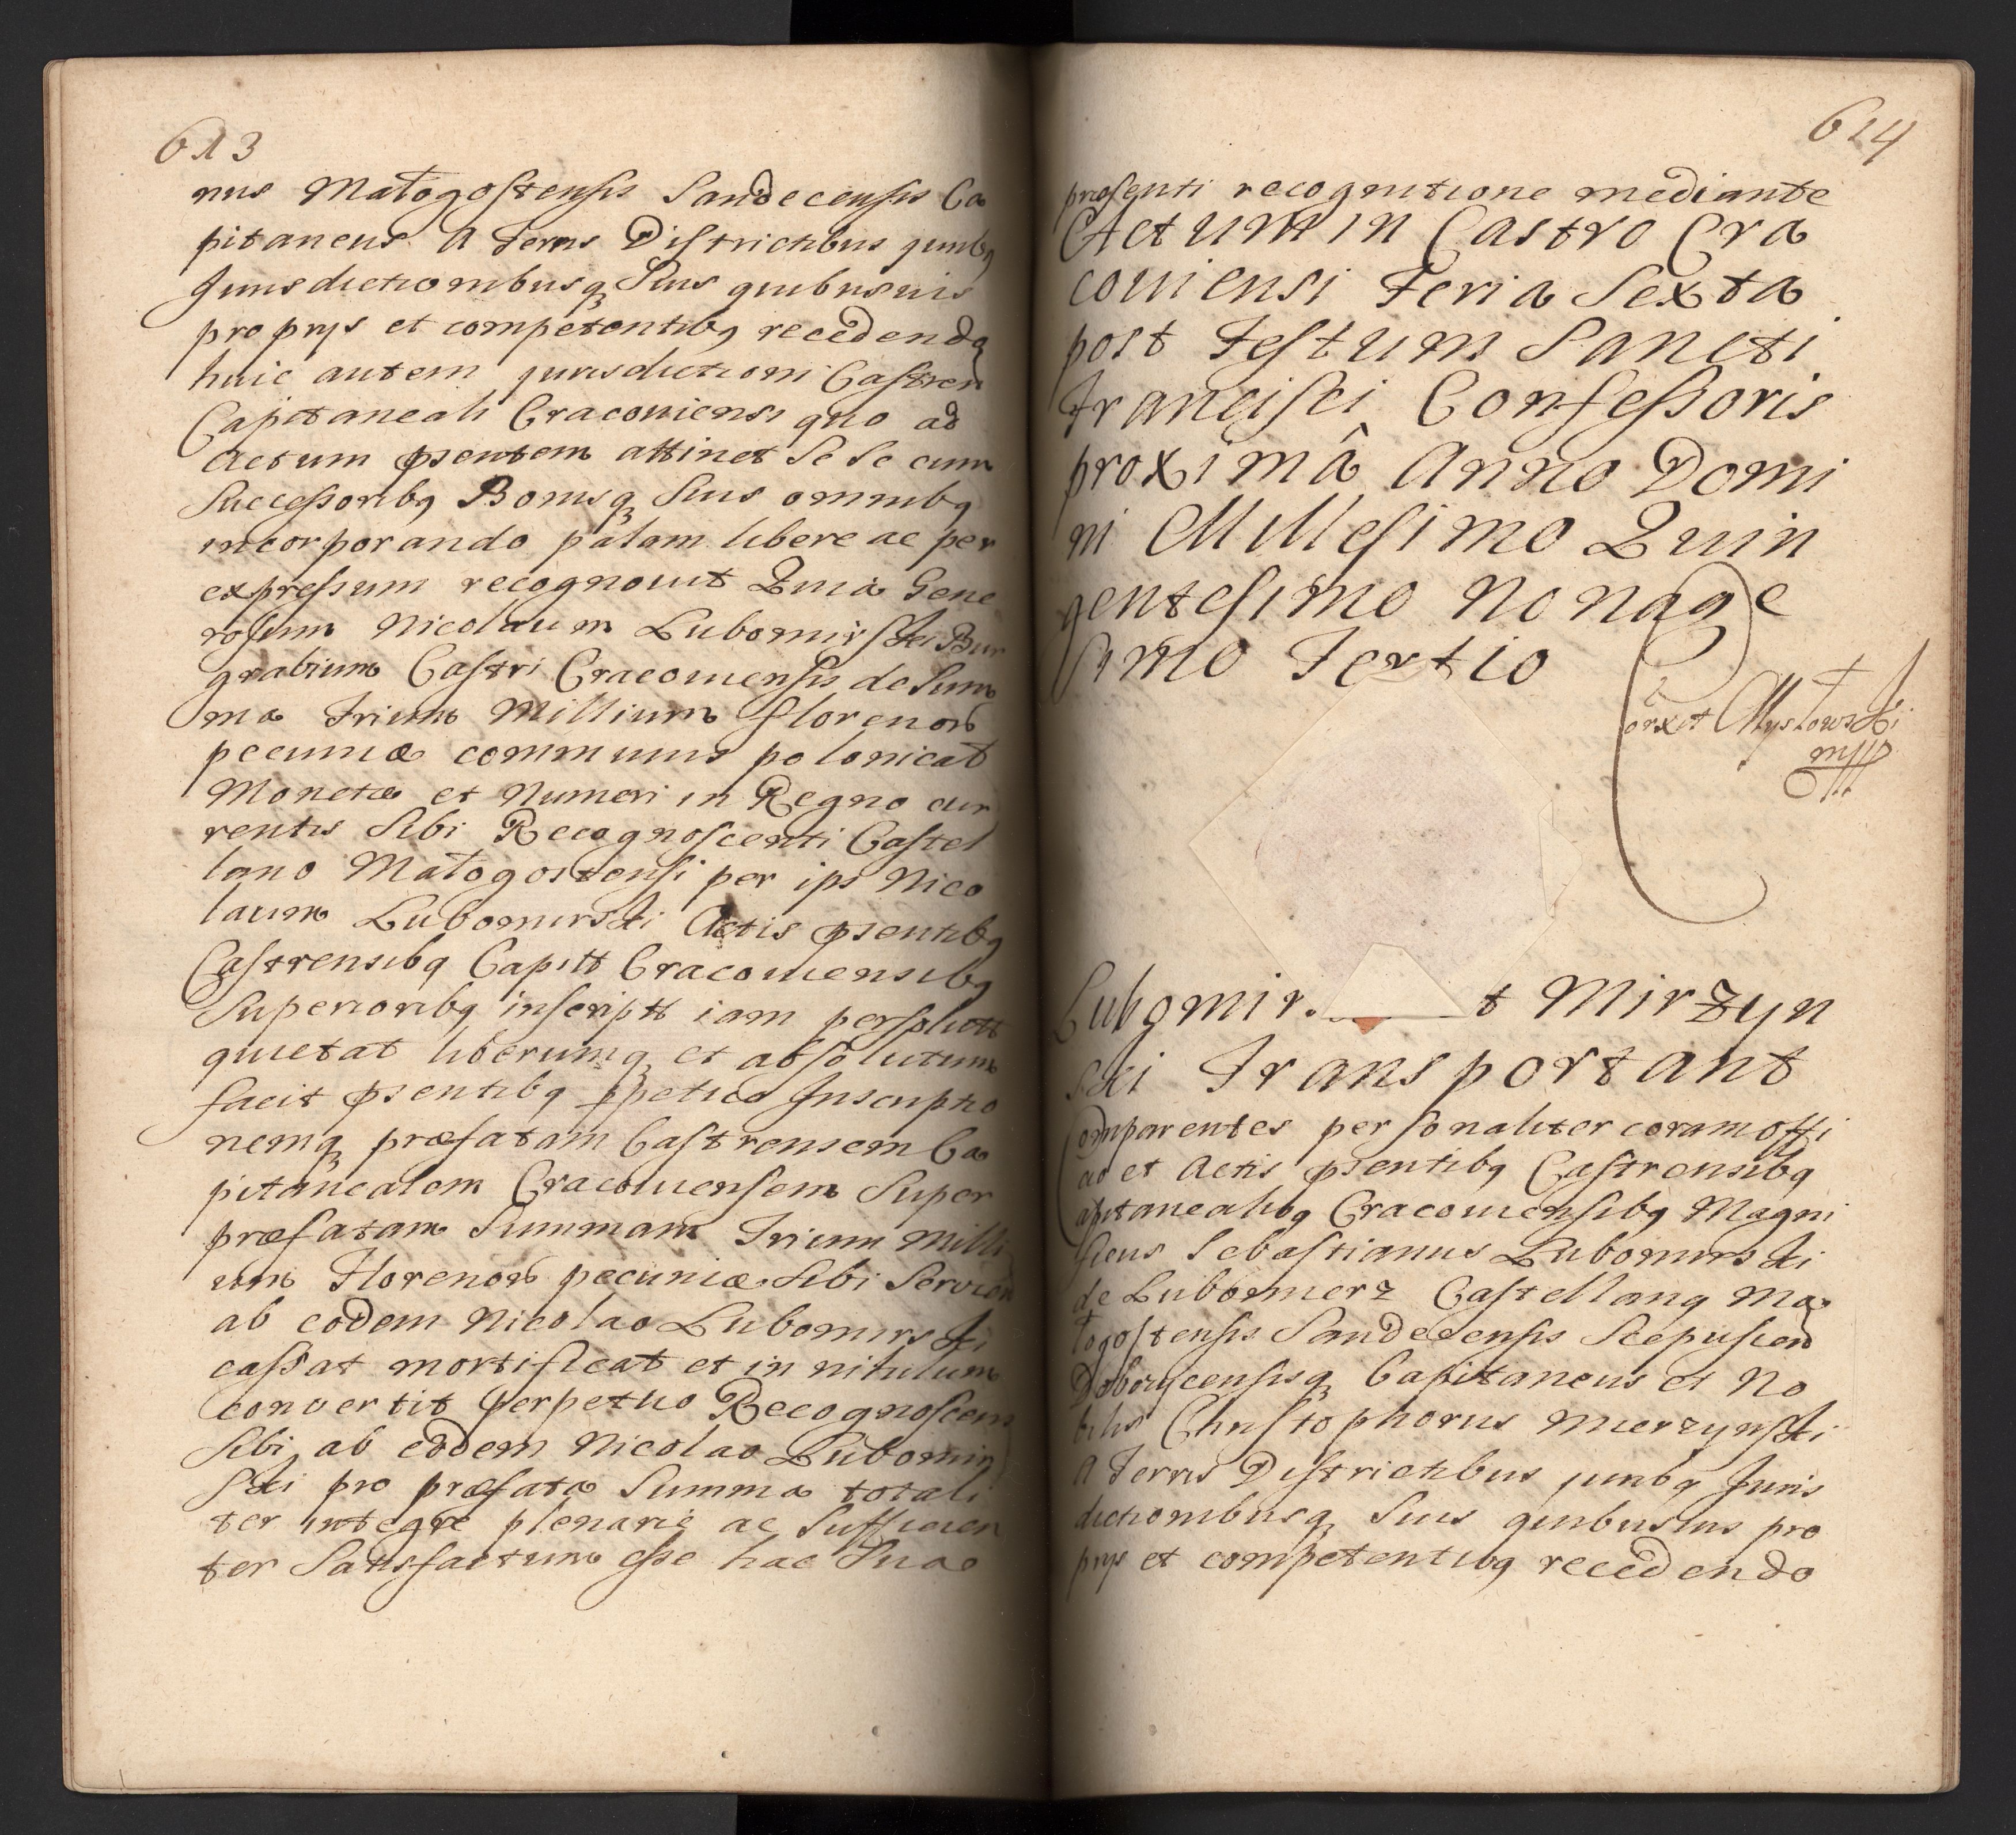 613
nus Małogostensis Sandecensis Ca
pitaneus A Terris Districtibus juribq
Jurisdictionibusq Suis quibusuis
proprys et competentibq recedendo
huic autem jurisdictioni Castren
Capitaneali Cracouiensi quo ad
Actum psentem attinet Se Se cum
Successoribq Bonisq Suis omnibq
incorporando palam libere ac per
expressum recognouit Quia Gene
rosum Nicolaum Lubomirski Bur
grabium Castri Cracouiensis de Sum
ma Trium Millium florenor
pecuniæ communis polonicat
Monetæ et Numeri in Regno cur
rentis Sibi Recognoscenti Castel
lano Małogostensi per ips Nico
laum Lubomirski Actis psentibq
Castrensibq Capitt Cracouiensibq
Superioribq inscriptt iam persolutt
quietat liberumq et absolutum
facit psentibq ppetuo Inscriptio
nemq præfatam Castrensem Ca
pitanealem Cracouiensem Super
præfatam Summam Trium Milli
um Florenor pecuniæ Sibi Servien
ab eodem Nicolao Lubomirski
cassat mortificat et in nihilum
convertit perpetuo Recognoscens
Sibi ab eodem Nicolao Lubomir
ski pro præfata Summa totali
ter integre plenarie ac Sufficien
ter Satisfactum esse hac Sua
614
præsenti recognitione mediante
Actum in Castro Cra
couiensi Feria Sexta
post Festum Sancti
Francisci Confessoris
proximâ Anno Domi
ni Millesimo Quin
gentesimo Nonage
simo Tertio
Mysłowski
mpp
Lubomir t Mirzyn
ski Transportant
Comparentes personaliter coram offi
cio et Actis psentibq Castrensibq
Capitanealibq Cracouiensibq Magni
ficus Sebastianus Lubomirski
de Lubomierz Castellanq Ma
łogostensis Sandecensis Scepusien
Dobczycensisq Capitaneus et No
bilis Christophorus Mierzynski
A Terris Districtibus juribq Juris
dictionibusq Suis quibusuis pro
prys et competentibq recedendo